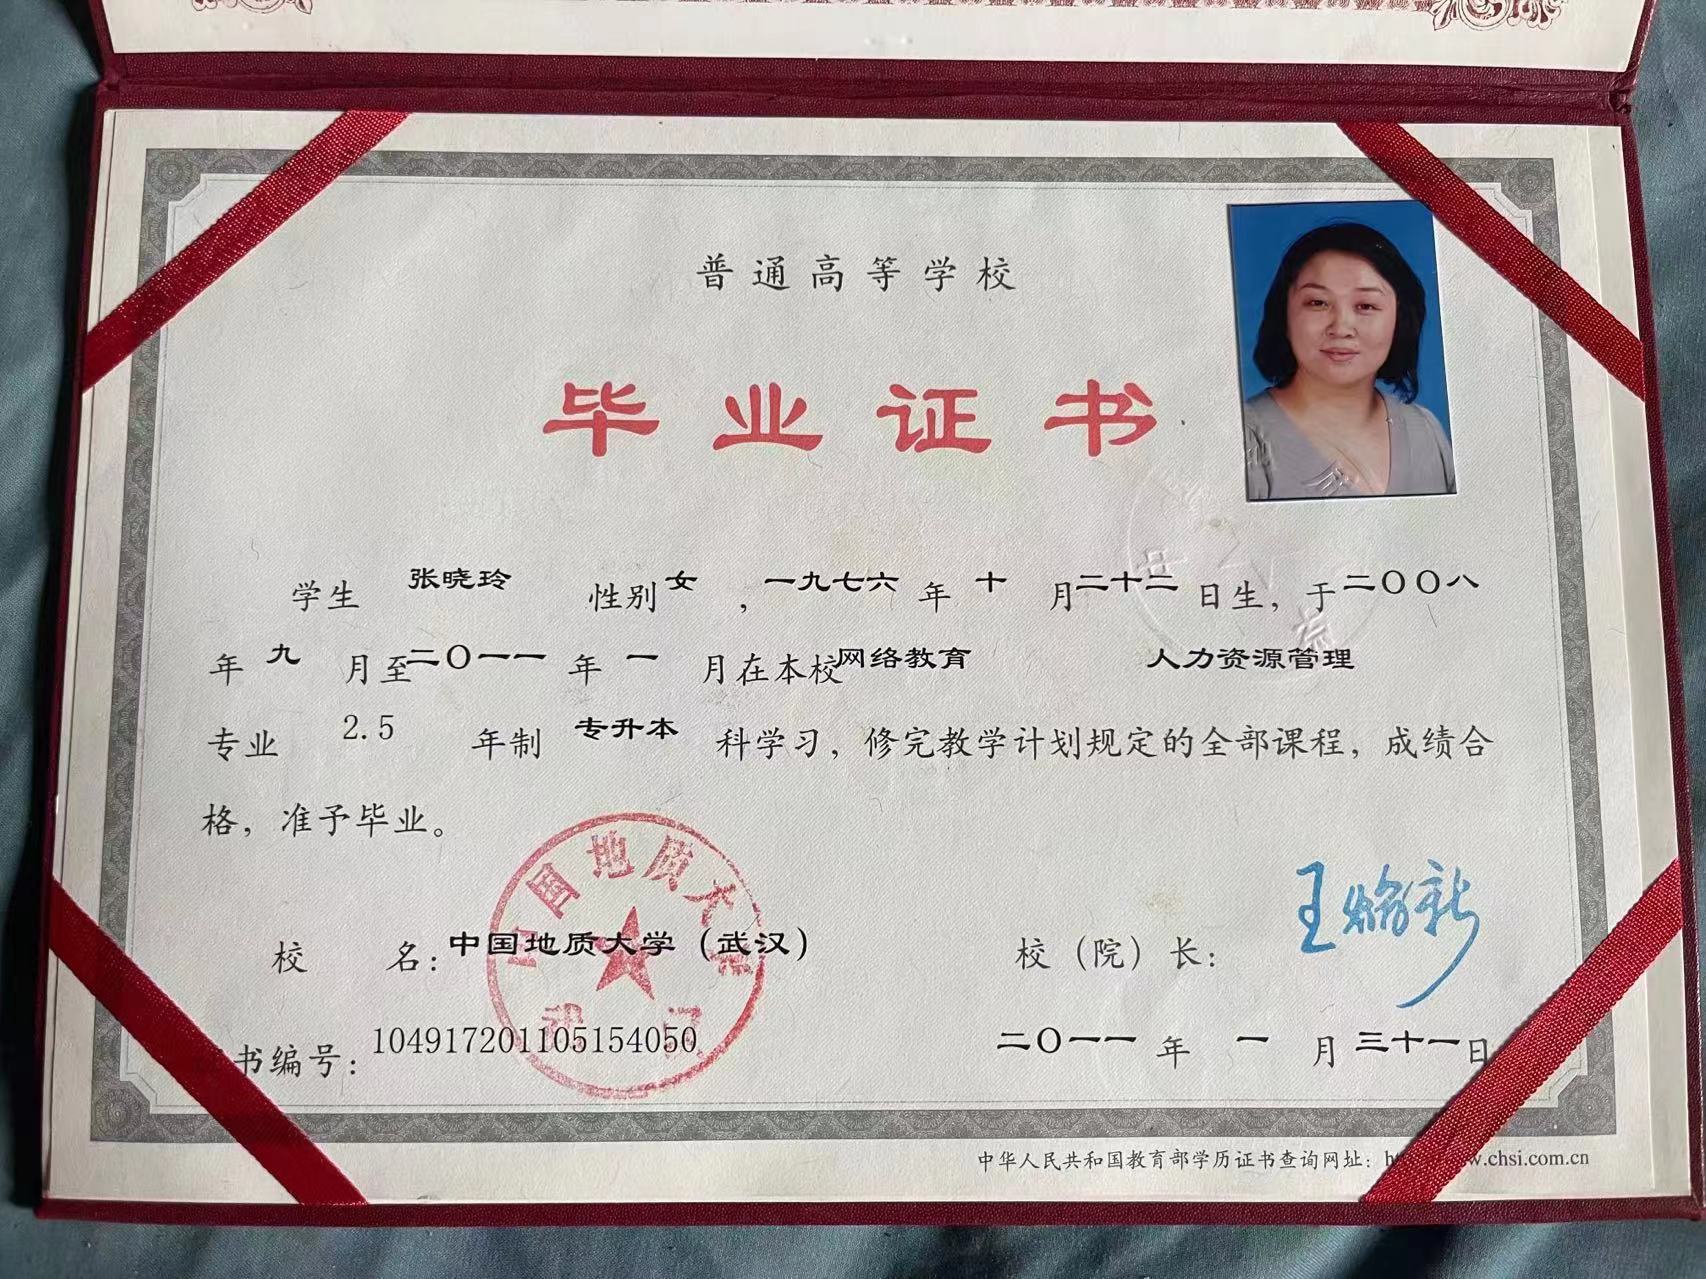 普通高等学校
毕业证书
学生 张晓玲 性别 女 ，一九七六 年 十 月 二十二 日生，于 二〇〇八
年 九 月至 二〇一一 年 一 月在本校 网络教育 人力资源管理
专业 2.5 年制 专升本 科学习，修完教学计划规定的全部课程，成绩合
格，准予毕业。
中国地质大学
武汉
校 名：中国地质大学（武汉） 校（院）长：王焰新
书编号：104917201105154050 二〇一一 年 一 月 三十一 日
中华人民共和国教育部学历证书查询网址：.chsi.com.cn